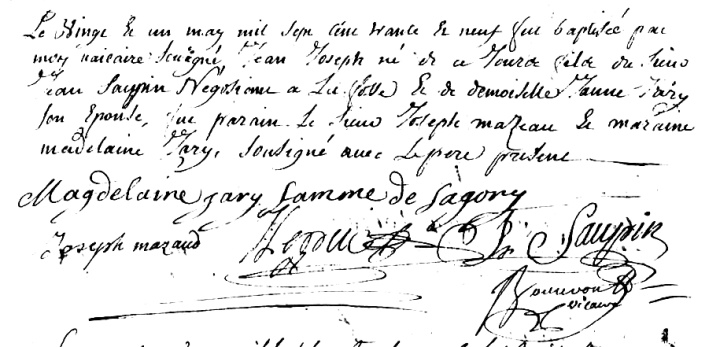 Le Vingt et un may mil sept cent trante et neuf fut baptisé par
moy vicaire sousigné, Jean Joseph né de ce Jour fils du sieur
Jean Saupin Négotiant a La fosse et de demoiselle Janne Jary
son Epouse, fut parain Le sieur Joseph mazeau et maraine
madelaine Jary, sousigné avec Le pere present
Magdelaine jary famme de Sagory
Joseph mazaud Jn Saupin
vicaire